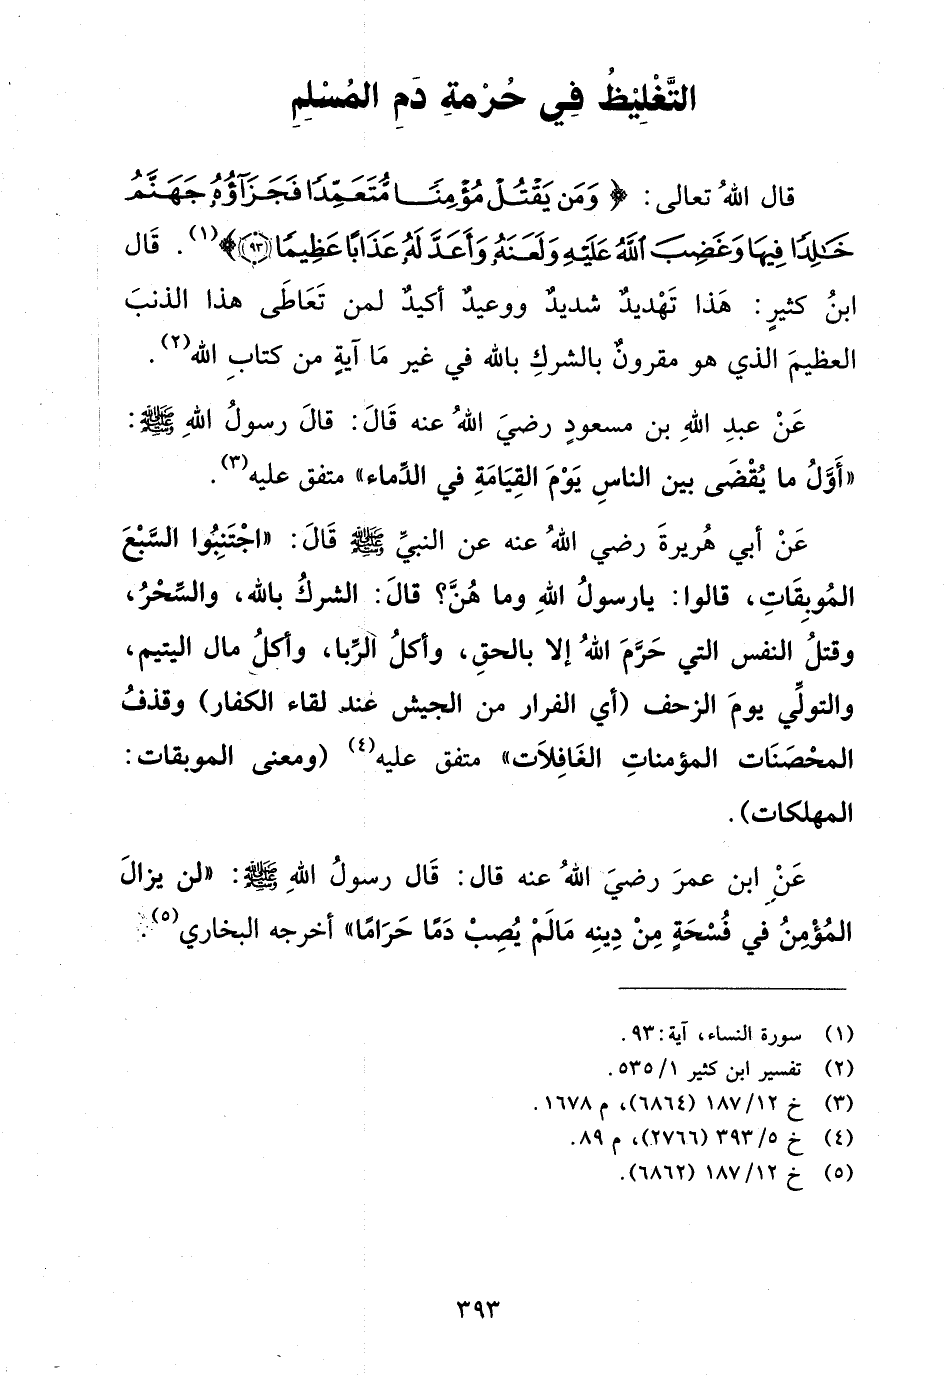 التَّغْلِيْظُ فِي حُرْمةِ دَمِ المُسْلِمِ
قال اللهُ تعالى: ﴿ وَمَن يَقْتُلْ مُؤْمِنًا مُّتَعَمِّدًا فَجَزَآؤُهُۥ جَهَنَّمُ
خَٰلِدًا فِيهَا وَغَضِبَ ٱللَّهُ عَلَيْهِ وَلَعَنَهُۥ وَأَعَدَّ لَهُۥ عَذَابًا عَظِيمًا ﴿٩٣﴾﴾(١). قَال
ابنُ كثيرٍ: هَذا تَهْديدٌ شديدٌ ووعيدٌ أكيدٌ لمن تَعَاطَى هذا الذنبَ
العظيمَ الذي هو مقرونٌ بالشركِ بالله في غير مَا آيةٍ من كتابِ الله(٢).
عَنْ عبدِ اللهِ بن مسعودٍ رضيَ اللهُ عنه قَالَ: قالَ رسولُ اللهِ ﷺ:
«أَوَّلُ ما يُقْضَى بين الناسِ يَوْمَ القِيَامَةِ في الدِّماء» متفق عليه(٣).
عَنْ أبي هُريرةَ رضي اللهُ عنه عن النبيِّ ﷺ قَالَ: «اجْتَنِبُوا السَّبْعَ
المُوبِقَاتِ، قالوا: يارسولُ اللهِ وما هُنَّ؟ قالَ: الشركُ بالله، والسِّحْرُ،
وقتلُ النفس التي حَرَّمَ اللهُ إلا بالحقِ، وأكلُ الرِّبا، وأكلُ مال اليتيم،
والتولِّي يومَ الزحف (أي الفرار من الجيش عند لقاء الكفار) وقذفُ
المحْصَنَات المؤمناتِ الغَافِلاَت» متفق عليه(٤) (ومعنى الموبقات:
المهلكات).
عَنْ ابن عمرَ رضيَ اللهُ عنه قال: قَال رسولُ اللهِ ﷺ: «لن يزالَ
المُؤْمِنُ في فُسْحَةٍ مِنْ دِينِه مَالَمْ يُصِبْ دَمًا حَرَامًا» أخرجه البخاري(٥).
(١) سورة النساء، آية: ٩٣.
(٢) تفسير ابن كثير ١/ ٥٣٥.
(٣) خ ١٢/ ١٨٧ (٦٨٦٤)، م ١٦٧٨.
(٤) خ ٥/ ٣٩٣ (٢٧٦٦)، م ٨٩.
(٥) خ ١٢/ ١٨٧ (٦٨٦٢).
٣٩٣